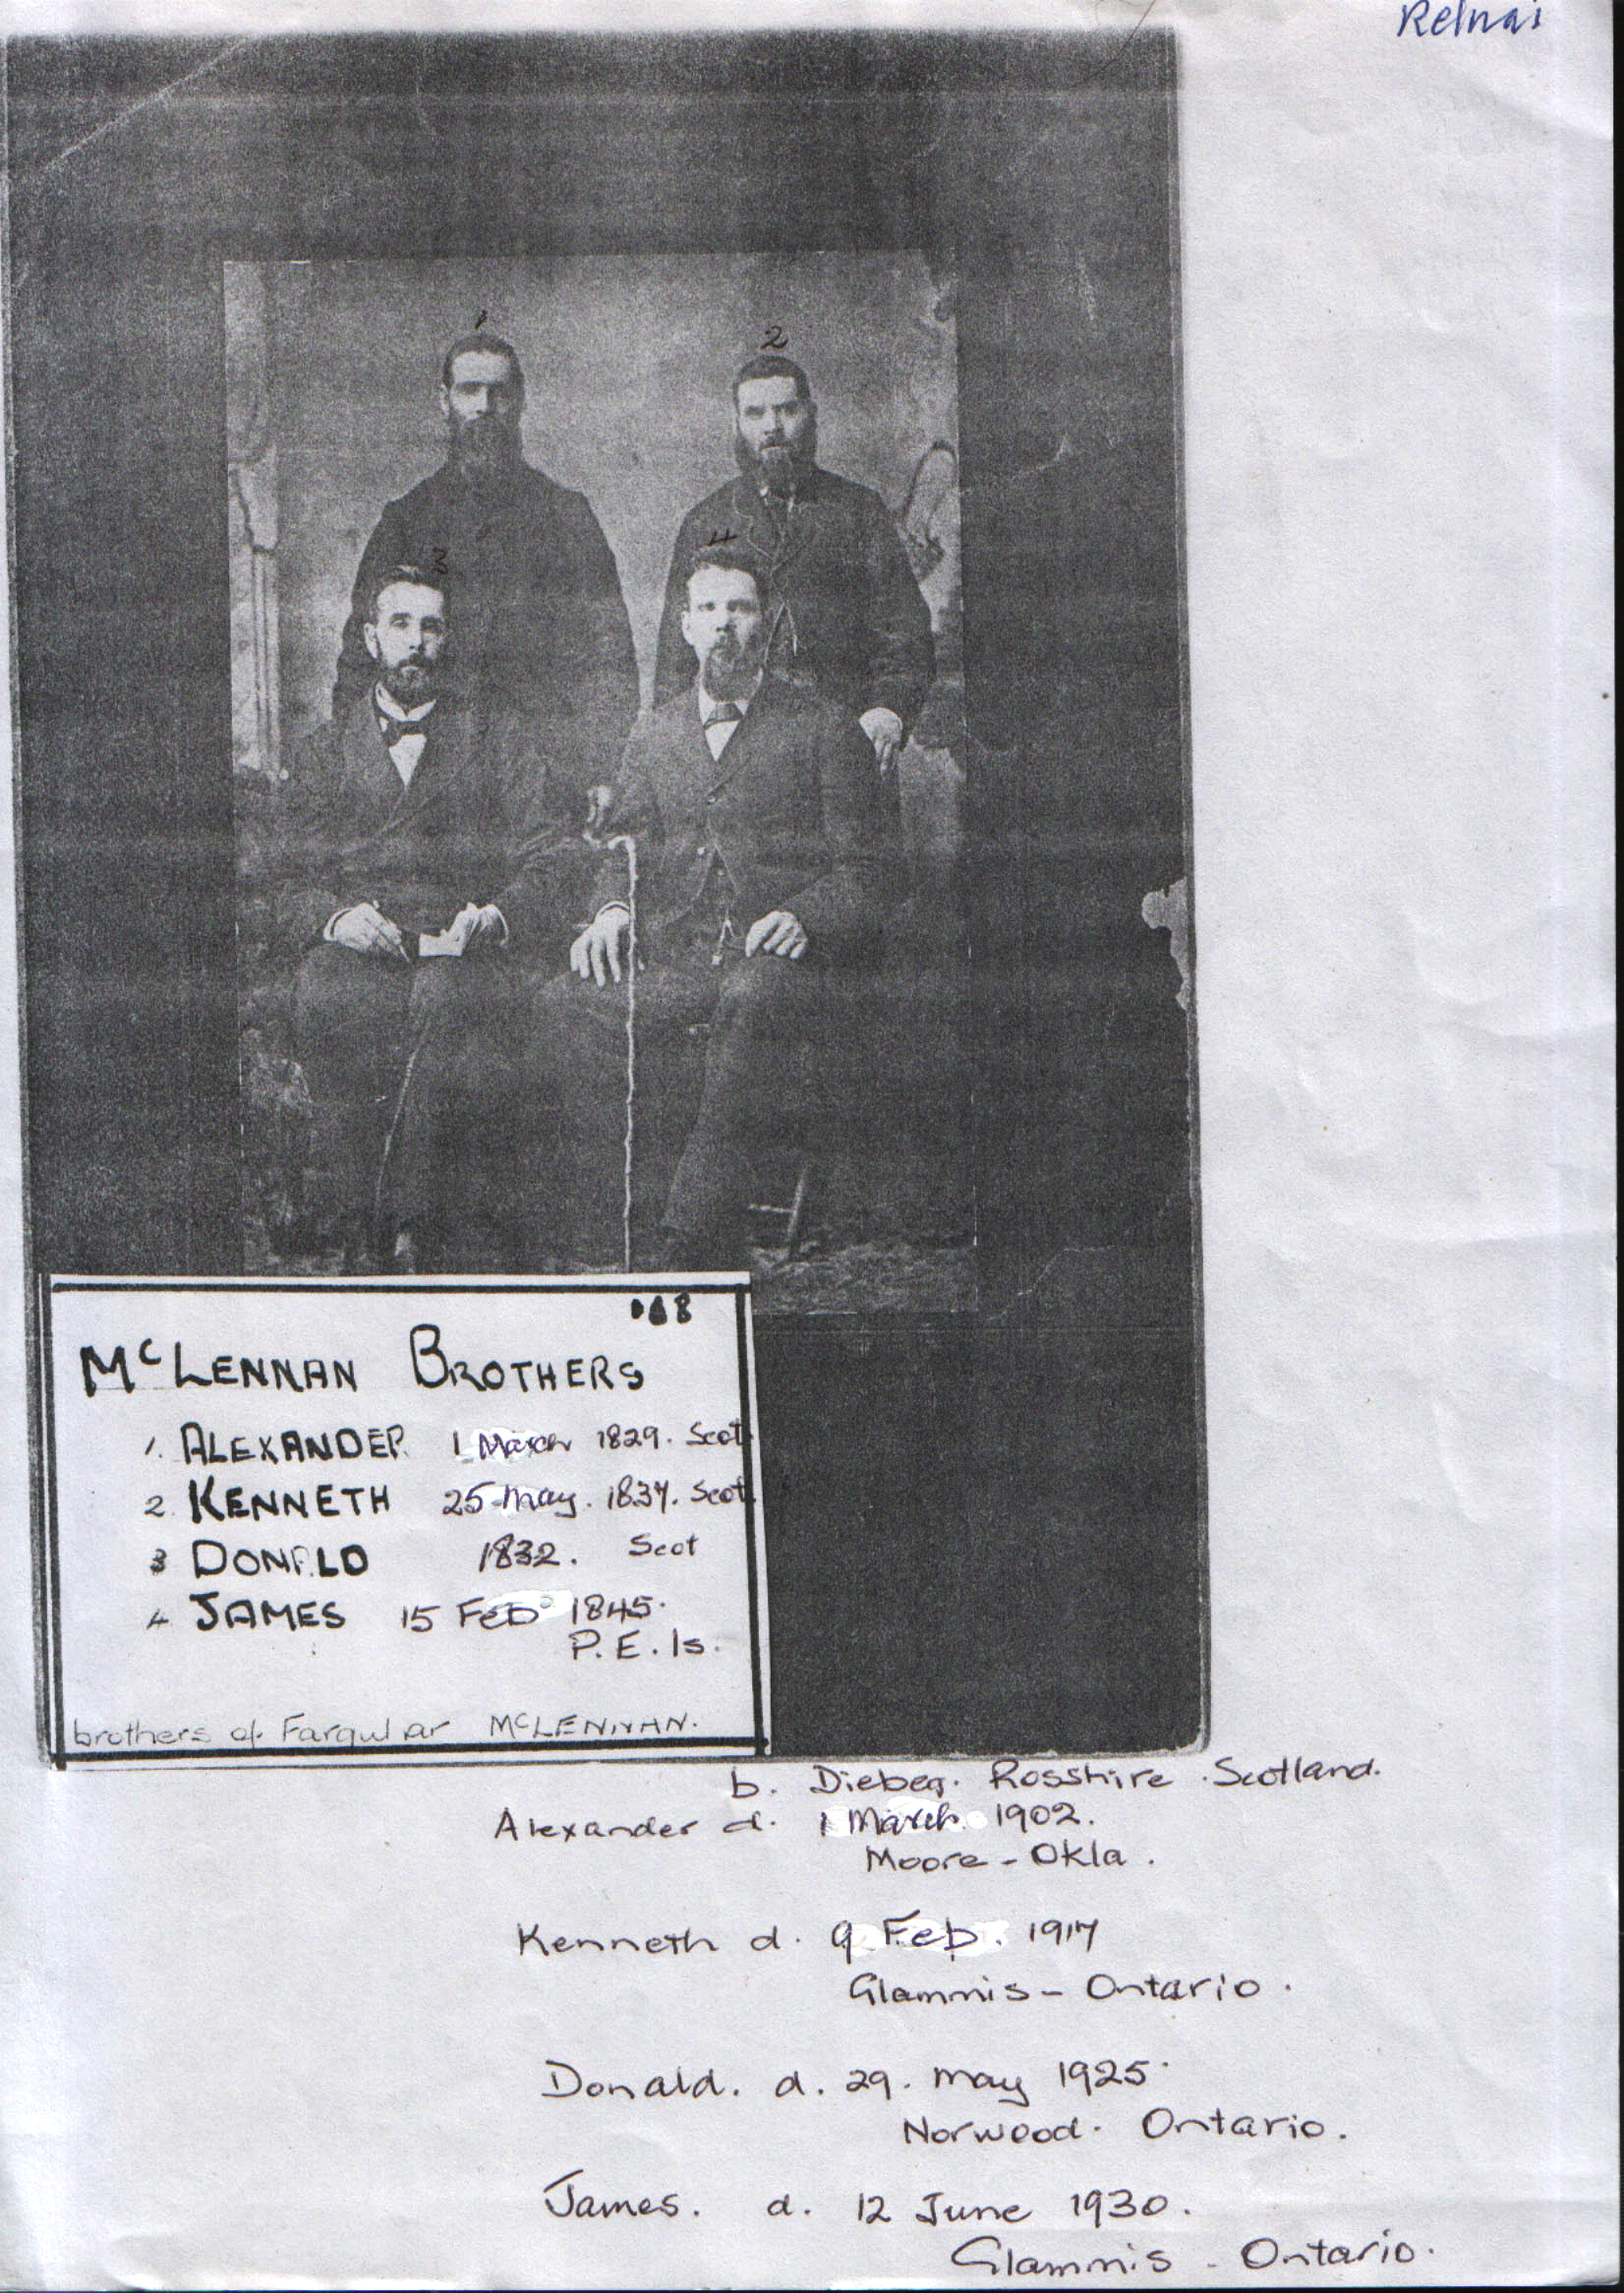 1
2
3
4
McLENNAN BROTHERS
1. ALEXANDER 1 March 1829. Scot
2. KENNETH 25 May. 1837. Scot.
3 DONALD 1832. Scot
4 JAMES 15 Feb 1845.
P.E. Is.
brothers of Farquhar McLENNAN.
b. Diebeg. Rosshire. Scotland.
Alexander d. 1 March 1902.
Moore - Okla.
Kenneth d. 9 Feb. 1917
Glammis - Ontario.
Donald. d. 29. May 1925.
Norwood. Ontario.
James. d. 12 June 1930.
Glammis - Ontario.